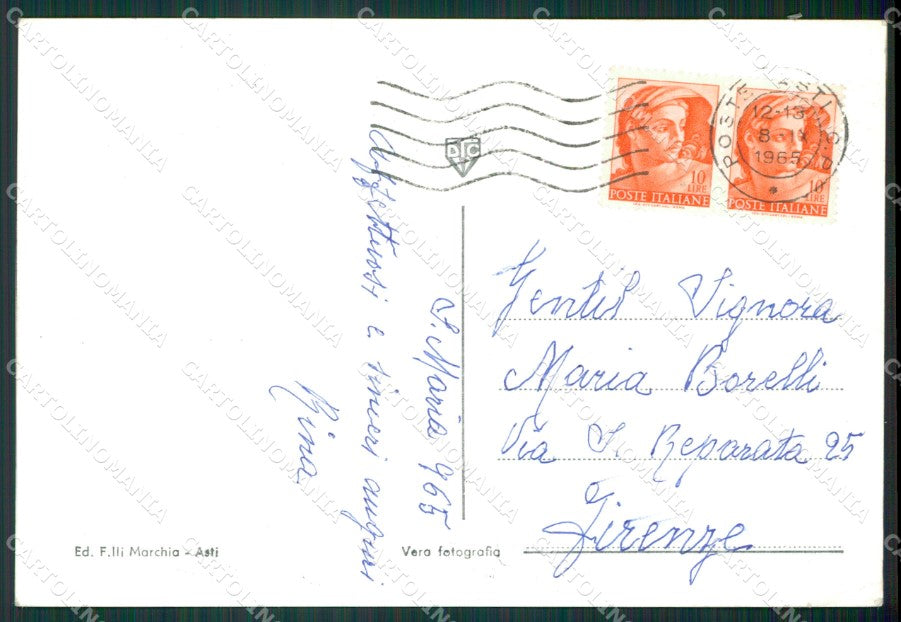 S. Maria 965
Affettuosi e sinceri auguri
Rina
DTC
10
LIRE
POSTE ITALIANE
10
LIRE
POSTE ITALIANE
12-13
8-IX
1965
Gentil Signora
Maria Borelli
Via S. Reparata 25
Firenze
Ed. F.lli Marchia - Asti
Vera fotografia
CARTOLINOMANIA